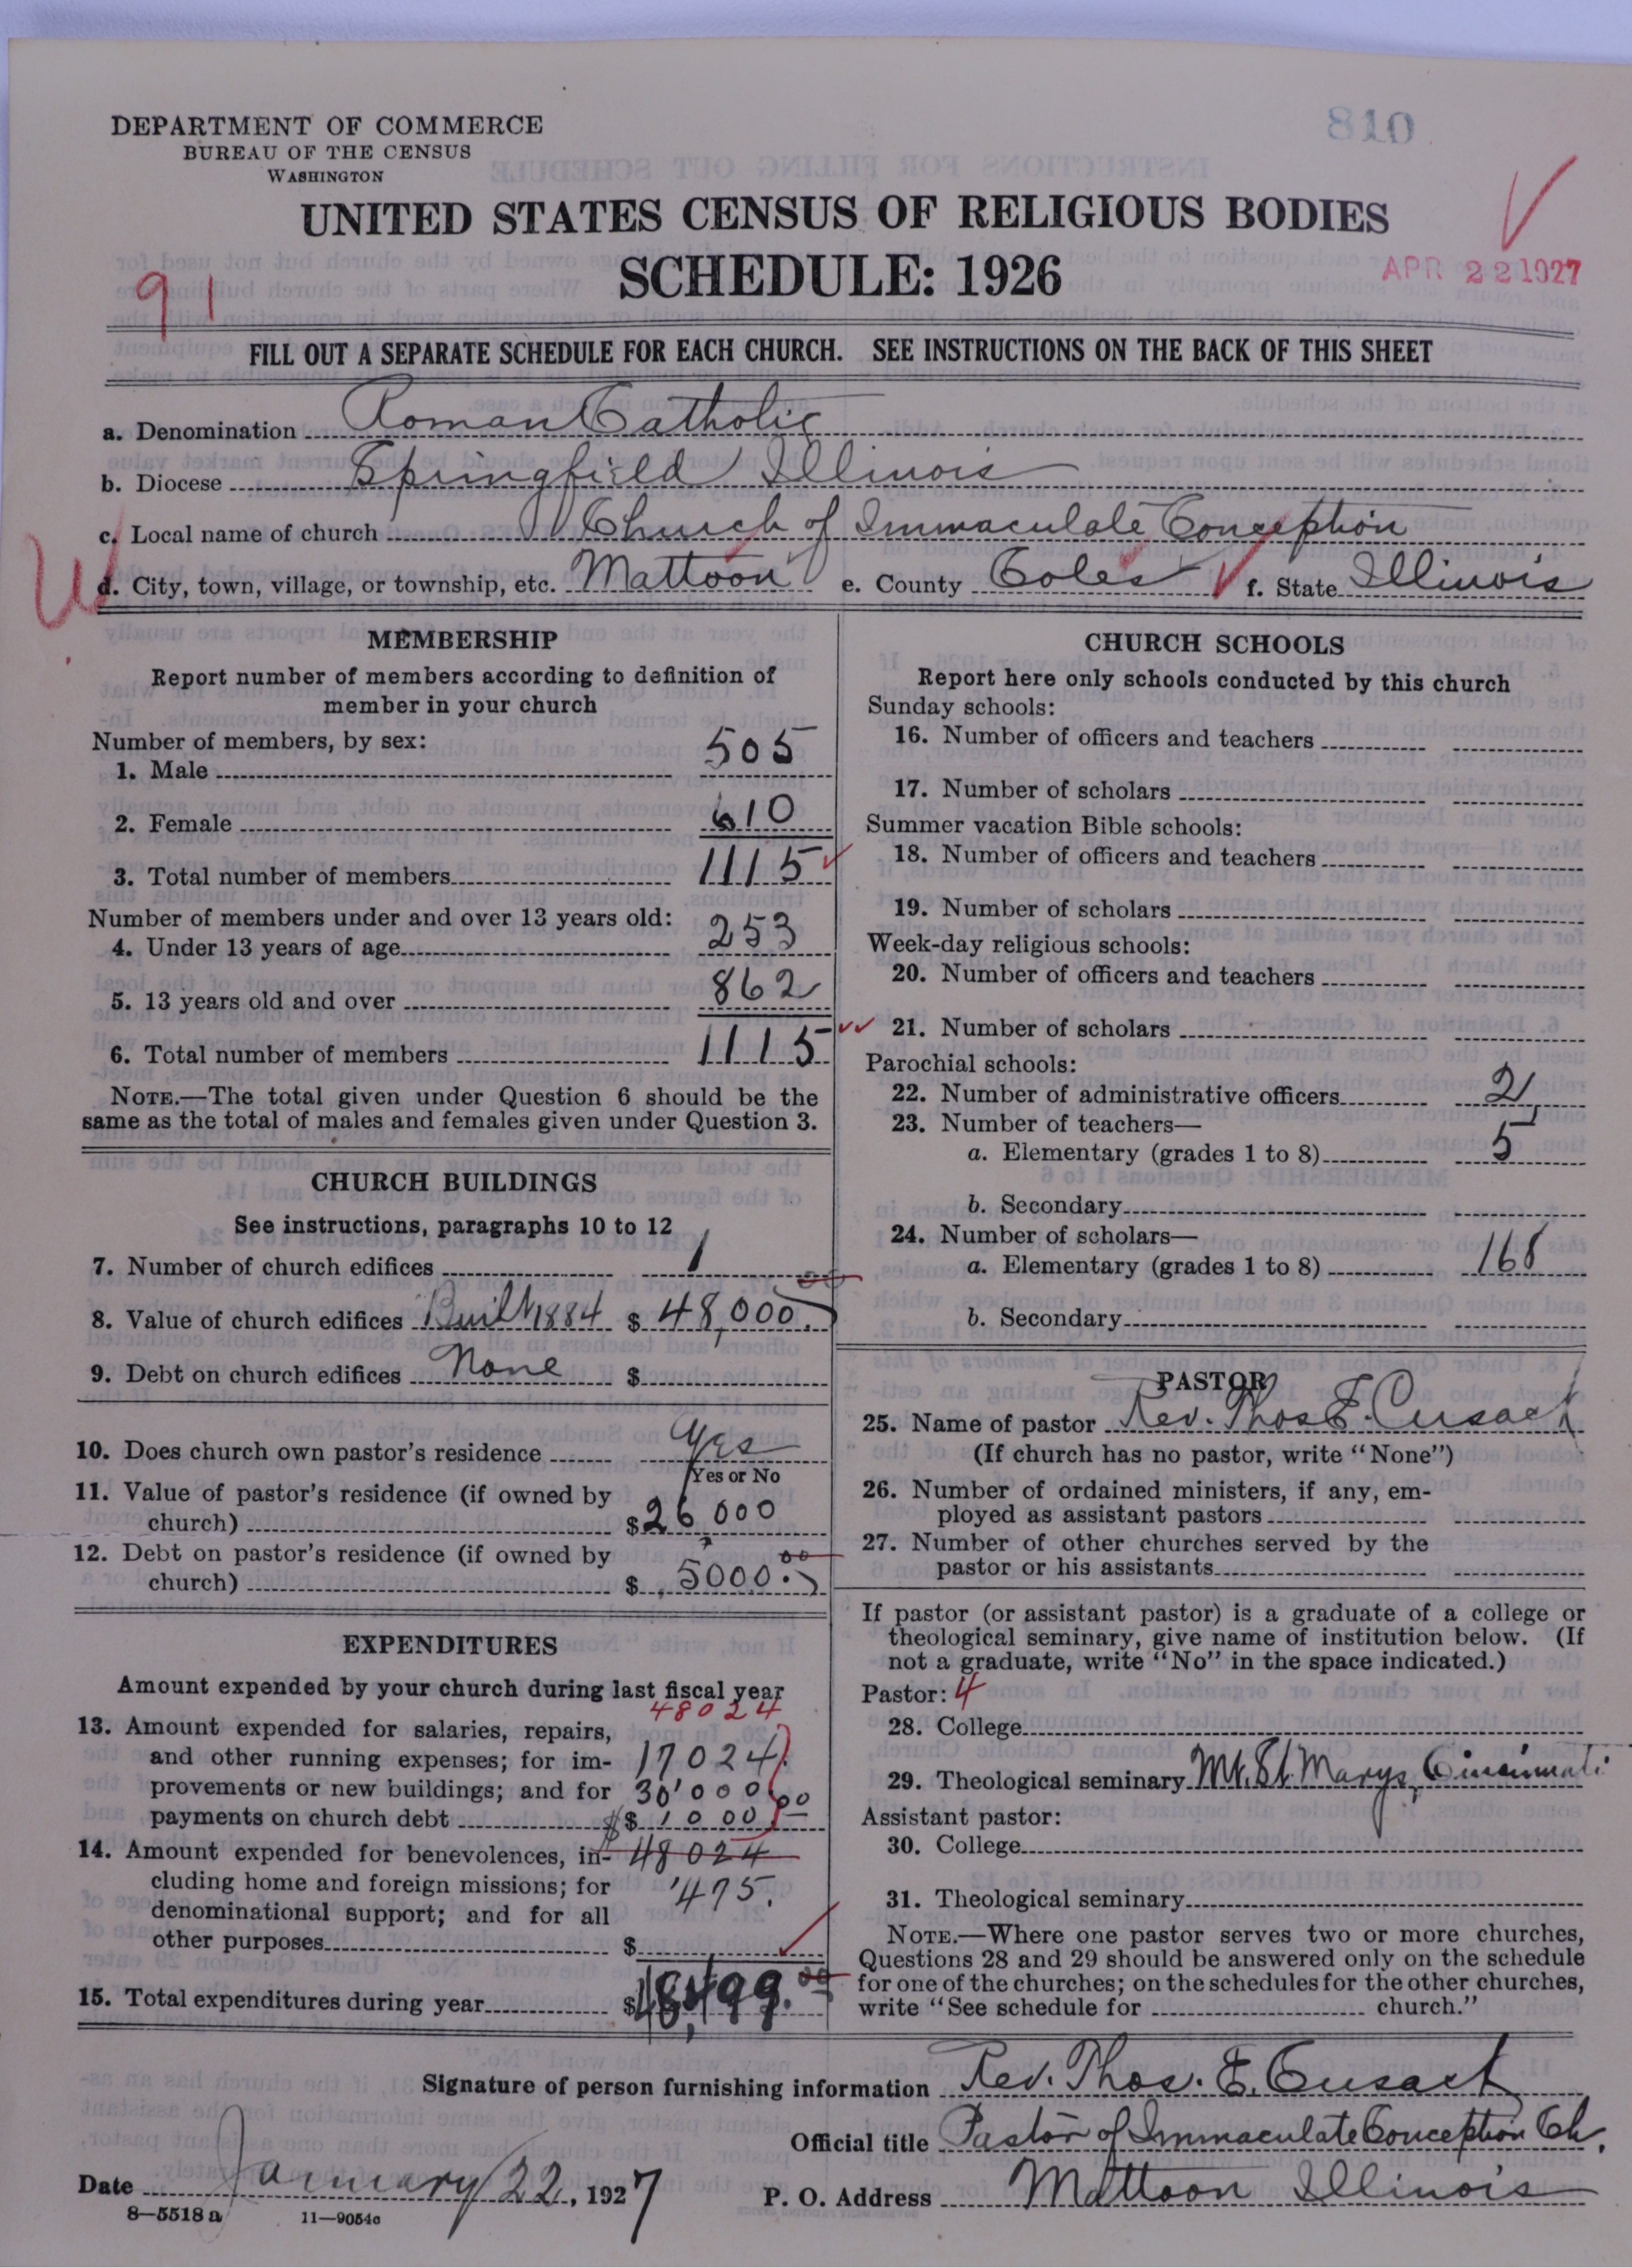 DEPARTMENT OF COMMERCE
BUREAU OF THE CENSUS
WASHINGTON
810
UNITED STATES CENSUS OF RELIGIOUS BODIES
SCHEDULE: 1926
APR 22 1927
91
FILL OUT A SEPARATE SCHEDULE FOR EACH CHURCH. SEE INSTRUCTIONS ON THE BACK OF THIS SHEET
a. Denomination Roman Catholic
b. Diocese Springfield Illinois
c. Local name of church Church of Immaculate Conception
d. City, town, village, or township, etc. Mattoon e. County Coles f. State Illinois
MEMBERSHIP
Report number of members according to definition of
member in your church
Number of members, by sex:
1. Male 505
2. Female 610
3. Total number of members 1115
Number of members under and over 13 years old:
4. Under 13 years of age 253
5. 13 years old and over 862
6. Total number of members 1115
NOTE.—The total given under Question 6 should be the
same as the total of males and females given under Question 3.
CHURCH BUILDINGS
See instructions, paragraphs 10 to 12
7. Number of church edifices 1
8. Value of church edifices Built 1884 $ 48,000.00
9. Debt on church edifices None $
10. Does church own pastor's residence Yes
Yes or No
11. Value of pastor's residence (if owned by
church) $ 26,000
12. Debt on pastor's residence (if owned by
church) $ 5000.00
EXPENDITURES
Amount expended by your church during last fiscal year
48024
13. Amount expended for salaries, repairs,
and other running expenses; for im- 17024
provements or new buildings; and for 30'000
payments on church debt $ 1000 00
14. Amount expended for benevolences, in- 48024
cluding home and foreign missions; for 475.
denominational support; and for all
other purposes $
15. Total expenditures during year $ 48,499.00
CHURCH SCHOOLS
Report here only schools conducted by this church
Sunday schools:
16. Number of officers and teachers
17. Number of scholars
Summer vacation Bible schools:
18. Number of officers and teachers
19. Number of scholars
Week-day religious schools:
20. Number of officers and teachers
21. Number of scholars
Parochial schools:
22. Number of administrative officers 2
23. Number of teachers—
a. Elementary (grades 1 to 8) 5
b. Secondary
24. Number of scholars—
a. Elementary (grades 1 to 8) 168
b. Secondary
PASTOR
25. Name of pastor Rev. Thos E. Cusack
(If church has no pastor, write "None")
26. Number of ordained ministers, if any, em-
ployed as assistant pastors
27. Number of other churches served by the
pastor or his assistants
If pastor (or assistant pastor) is a graduate of a college or
theological seminary, give name of institution below. (If
not a graduate, write "No" in the space indicated.)
Pastor: 4
28. College
29. Theological seminary Mt. St. Marys, Cincinnati
Assistant pastor:
30. College
31. Theological seminary
NOTE.—Where one pastor serves two or more churches,
Questions 28 and 29 should be answered only on the schedule
for one of the churches; on the schedules for the other churches,
write "See schedule for church."
Signature of person furnishing information Rev. Thos. E. Cusack
Official title Pastor of Immaculate Conception Ch.
Date January 22, 1927 P. O. Address Mattoon Illinois
8—5518 a 11—9054c